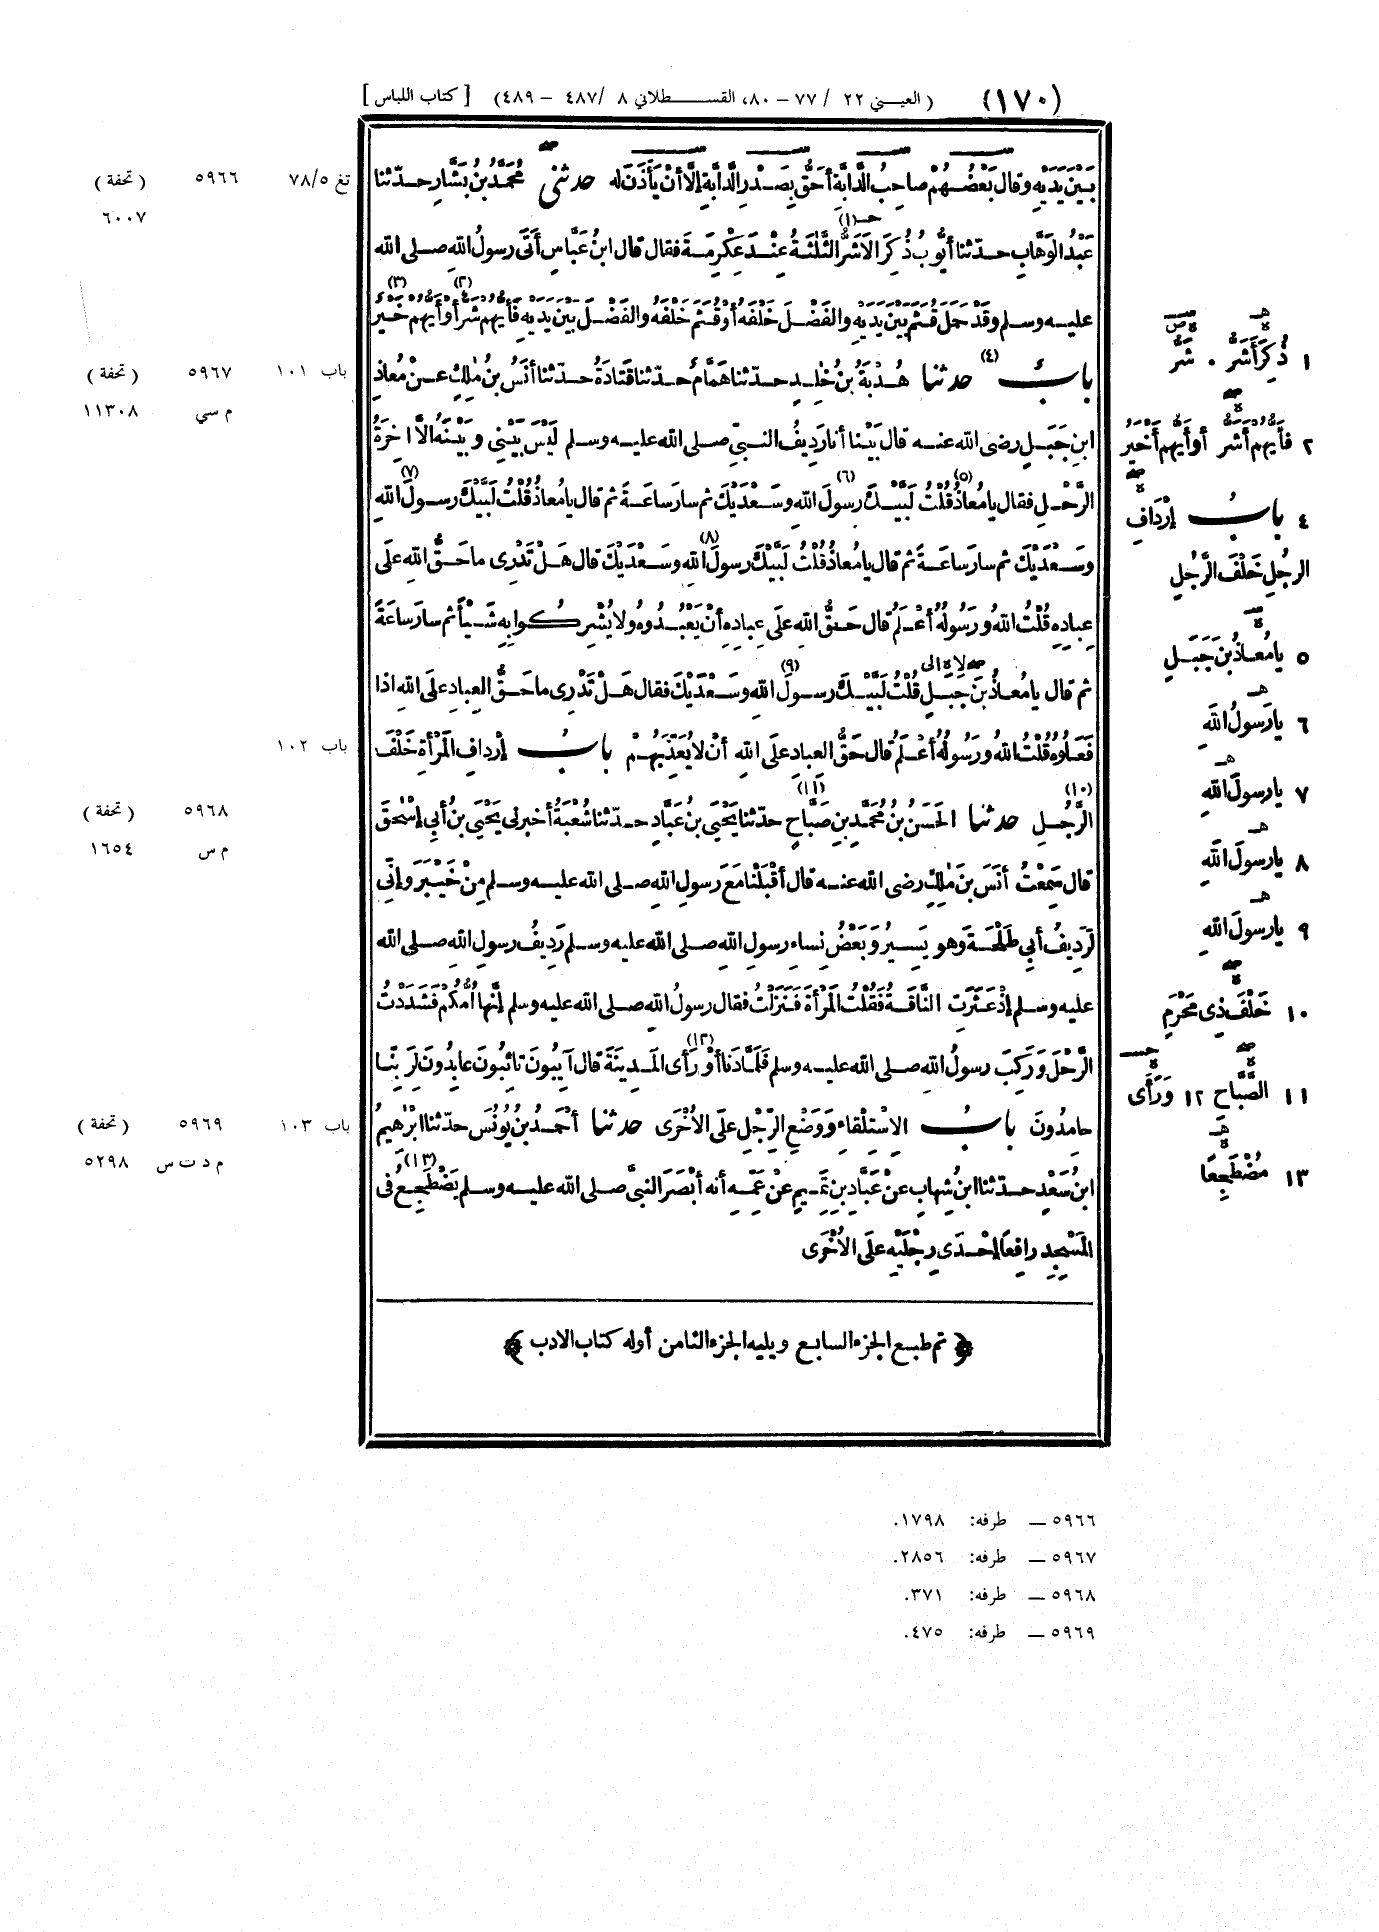 (١٧٠) (العيني ٢٢ / ٧٧ - ٨٠، القسطلاني ٨ / ٤٨٧ - ٤٨٩) [كتاب اللباس]
بَيْنَ يَدَيْهِ وقال بَعْضُهُمْ صاحِبُ الدَّابَّةِ أحَقُّ بِصَدْرِ الدَّابَّةِ إلَّا أنْ يَأْذَنَ له حدثنى مُحَمَّدُ بنُ بَشَّارٍ حدّثنا
عَبْدُ الوَهَّابِ حدّثنا أيُّوبُ ذُكِرَ الاَشَرُّ (١) الثَّلٰثَةُ عِنْدَ عِكْرِمَةَ فقال قال ابنُ عَبَّاسٍ أتَى رسولُ اللهِ صلى الله
عليه وسلم وقَدْ حَمَلَ قُثَمَ بَيْنَ يَدَيْهِ والفَضْلَ خَلْفَهُ أوْ قُثَمَ خَلْفَهُ والفَضْلَ بَيْنَ يَدَيْهِ فَأَيُّهُمْ شَرٌّ (٢) أوْ أيُّهُمْ خَيْرٌ (٣)
بابُ (٤) حدثنا هُدْبَةُ بنُ خٰلِدٍ حدّثنا هَمَّامٌ حدّثنا قَتَادَةُ حدّثنا أنَسُ بنُ مٰلِكٍ عنْ مُعاذِ
ابنِ جَبَلٍ رضى الله عنه قال بَيْنا أنا رَدِيفُ النبيِّ صلى الله عليه وسلم لَيْسَ بَيْنِي وبَيْنَهُ الاَّ آخِرَةُ
الرَّحْلِ فقال يا مُعاذُ (٥) قُلْتُ لَبَّيْكَ رسولَ (٦) اللهِ وسَعْدَيْكَ ثم سارَ ساعَةً ثم قال يا مُعاذُ قُلْتُ لَبَّيْكَ رسولَ (٧) اللهِ
وسَعْدَيْكَ ثم سارَ ساعَةً ثم قال يا مُعاذُ قُلْتُ لَبَّيْكَ رسولَ (٨) اللهِ وسَعْدَيْكَ قال هَلْ تَدْرِى ما حَقُّ اللهِ علَى
عِبادِهِ قُلْتُ اللهُ ورَسُولُهُ أعْلَمُ قال حَقُّ اللهِ علَى عِبادِهِ أنْ يَعْبُدُوهُ ولا يُشْرِكُوا بِهِ شَيْأً ثم سارَ ساعَةً
ثم قال يا مُعاذُ بنَ جَبَلٍ قُلْتُ لَبَّيْكَ رسولَ (٩) اللهِ وسَعْدَيْكَ فقال هَلْ تَدْرِى ما حَقُّ العِبادِ علَى اللهِ اذا
فَعَلُوهُ قُلْتُ اللهُ ورَسُولُهُ أعْلَمُ قال حَقُّ العِبادِ علَى اللهِ أنْ لا يُعَذِّبَهُمْ بابُ إرْدافِ المَرْأةِ خَلْفَ
الرَّجُلِ (١٠) حدثنا الحَسَنُ بنُ مُحَمَّدِ بنِ صَبَّاحٍ (١١) حدّثنا يَحْيَى بنُ عَبَّادٍ حدّثنا شُعْبَةُ أخبرنى يَحْيَى بنُ أبي إسْحٰقَ
قال سَمِعْتُ أنَسَ بنَ مٰلِكٍ رضى الله عنه قال أقْبَلْنا مَعَ رسولِ اللهِ صلى الله عليه وسلم مِنْ خَيْبَرَ وإنّى
لَرَدِيفُ أبِي طَلْحَةَ وهو يَسِيرُ وبَعْضُ نِساءِ رسولِ اللهِ صلى الله عليه وسلم رَدِيفُ رسولِ اللهِ صلى الله
عليه وسلم إذْ عَثَرَتِ النَّاقَةُ فَقُلْتُ المَرْأةَ فَنَزَلْتُ فقال رسولُ اللهِ صلى الله عليه وسلم إنَّها أُمُّكُمْ فَشَدَدْتُ
الرَّحْلَ ورَكِبَ رسولُ اللهِ صلى الله عليه وسلم فَلَمَّا دَنا أوْ رَأى (١٢) المَدِينَةَ قال آيِبُونَ تائِبُونَ عابِدُونَ لِرَبِّنا
حامِدُونَ بابُ الِاسْتِلْقاءِ ووَضْعِ الرِّجْلِ علَى الأُخْرَى حدثنا أحْمَدُ بنُ يُونُسَ حدّثنا ابْرٰهِيمُ
ابنُ سَعْدٍ حدّثنا ابنُ شِهابٍ عنْ عَبَّادِ بنِ تَمِيمٍ عنْ عَمِّهِ أنه أبْصَرَ النبيَّ صلى الله عليه وسلم يَضْطَجِعُ (١٣) فى
المَسْجِدِ رافِعاً إحْدَى رِجْلَيْهِ علَى الأُخْرَى
﴿ تم طبع الجزء السابع ويليه الجزء الثامن أوله كتاب الادب ﴾
١ ذُكِرَ أَشَرُّ . شَرُّ
٢ فَأَيُّهُمْ أَشَرُّ أوأَيُّهم أَخْيَرُ
٤ بابُ إرْدَافِ
الرجُلِ خَلْفَ الرَّجُلِ
٥ يا مُعاذُ بنَ جَبَلٍ
٦ يا رَسولَ اللهِ
٧ يا رسولَ اللهِ
٨ يا رسولَ اللهِ
٩ يا رسولَ اللهِ
١٠ خَلْفَ ذِي مَحْرَمٍ
١١ الصَّبَّاحِ ١٢ وَرَأَى
١٣ مُضْطَجِعًا
تغ ٧٨/٥ ٥٩٦٦ (تحفة)
٦٠٠٧
باب ١٠١ ٥٩٦٧ (تحفة)
م سي ١١٣٠٨
باب ١٠٢
٥٩٦٨ (تحفة)
م س ١٦٥٤
باب ١٠٣ ٥٩٦٩ (تحفة)
م د ت س ٥٢٩٨
٥٩٦٦ — طرفه: ١٧٩٨.
٥٩٦٧ — طرفه: ٢٨٥٦.
٥٩٦٨ — طرفه: ٣٧١.
٥٩٦٩ — طرفه: ٤٧٥.